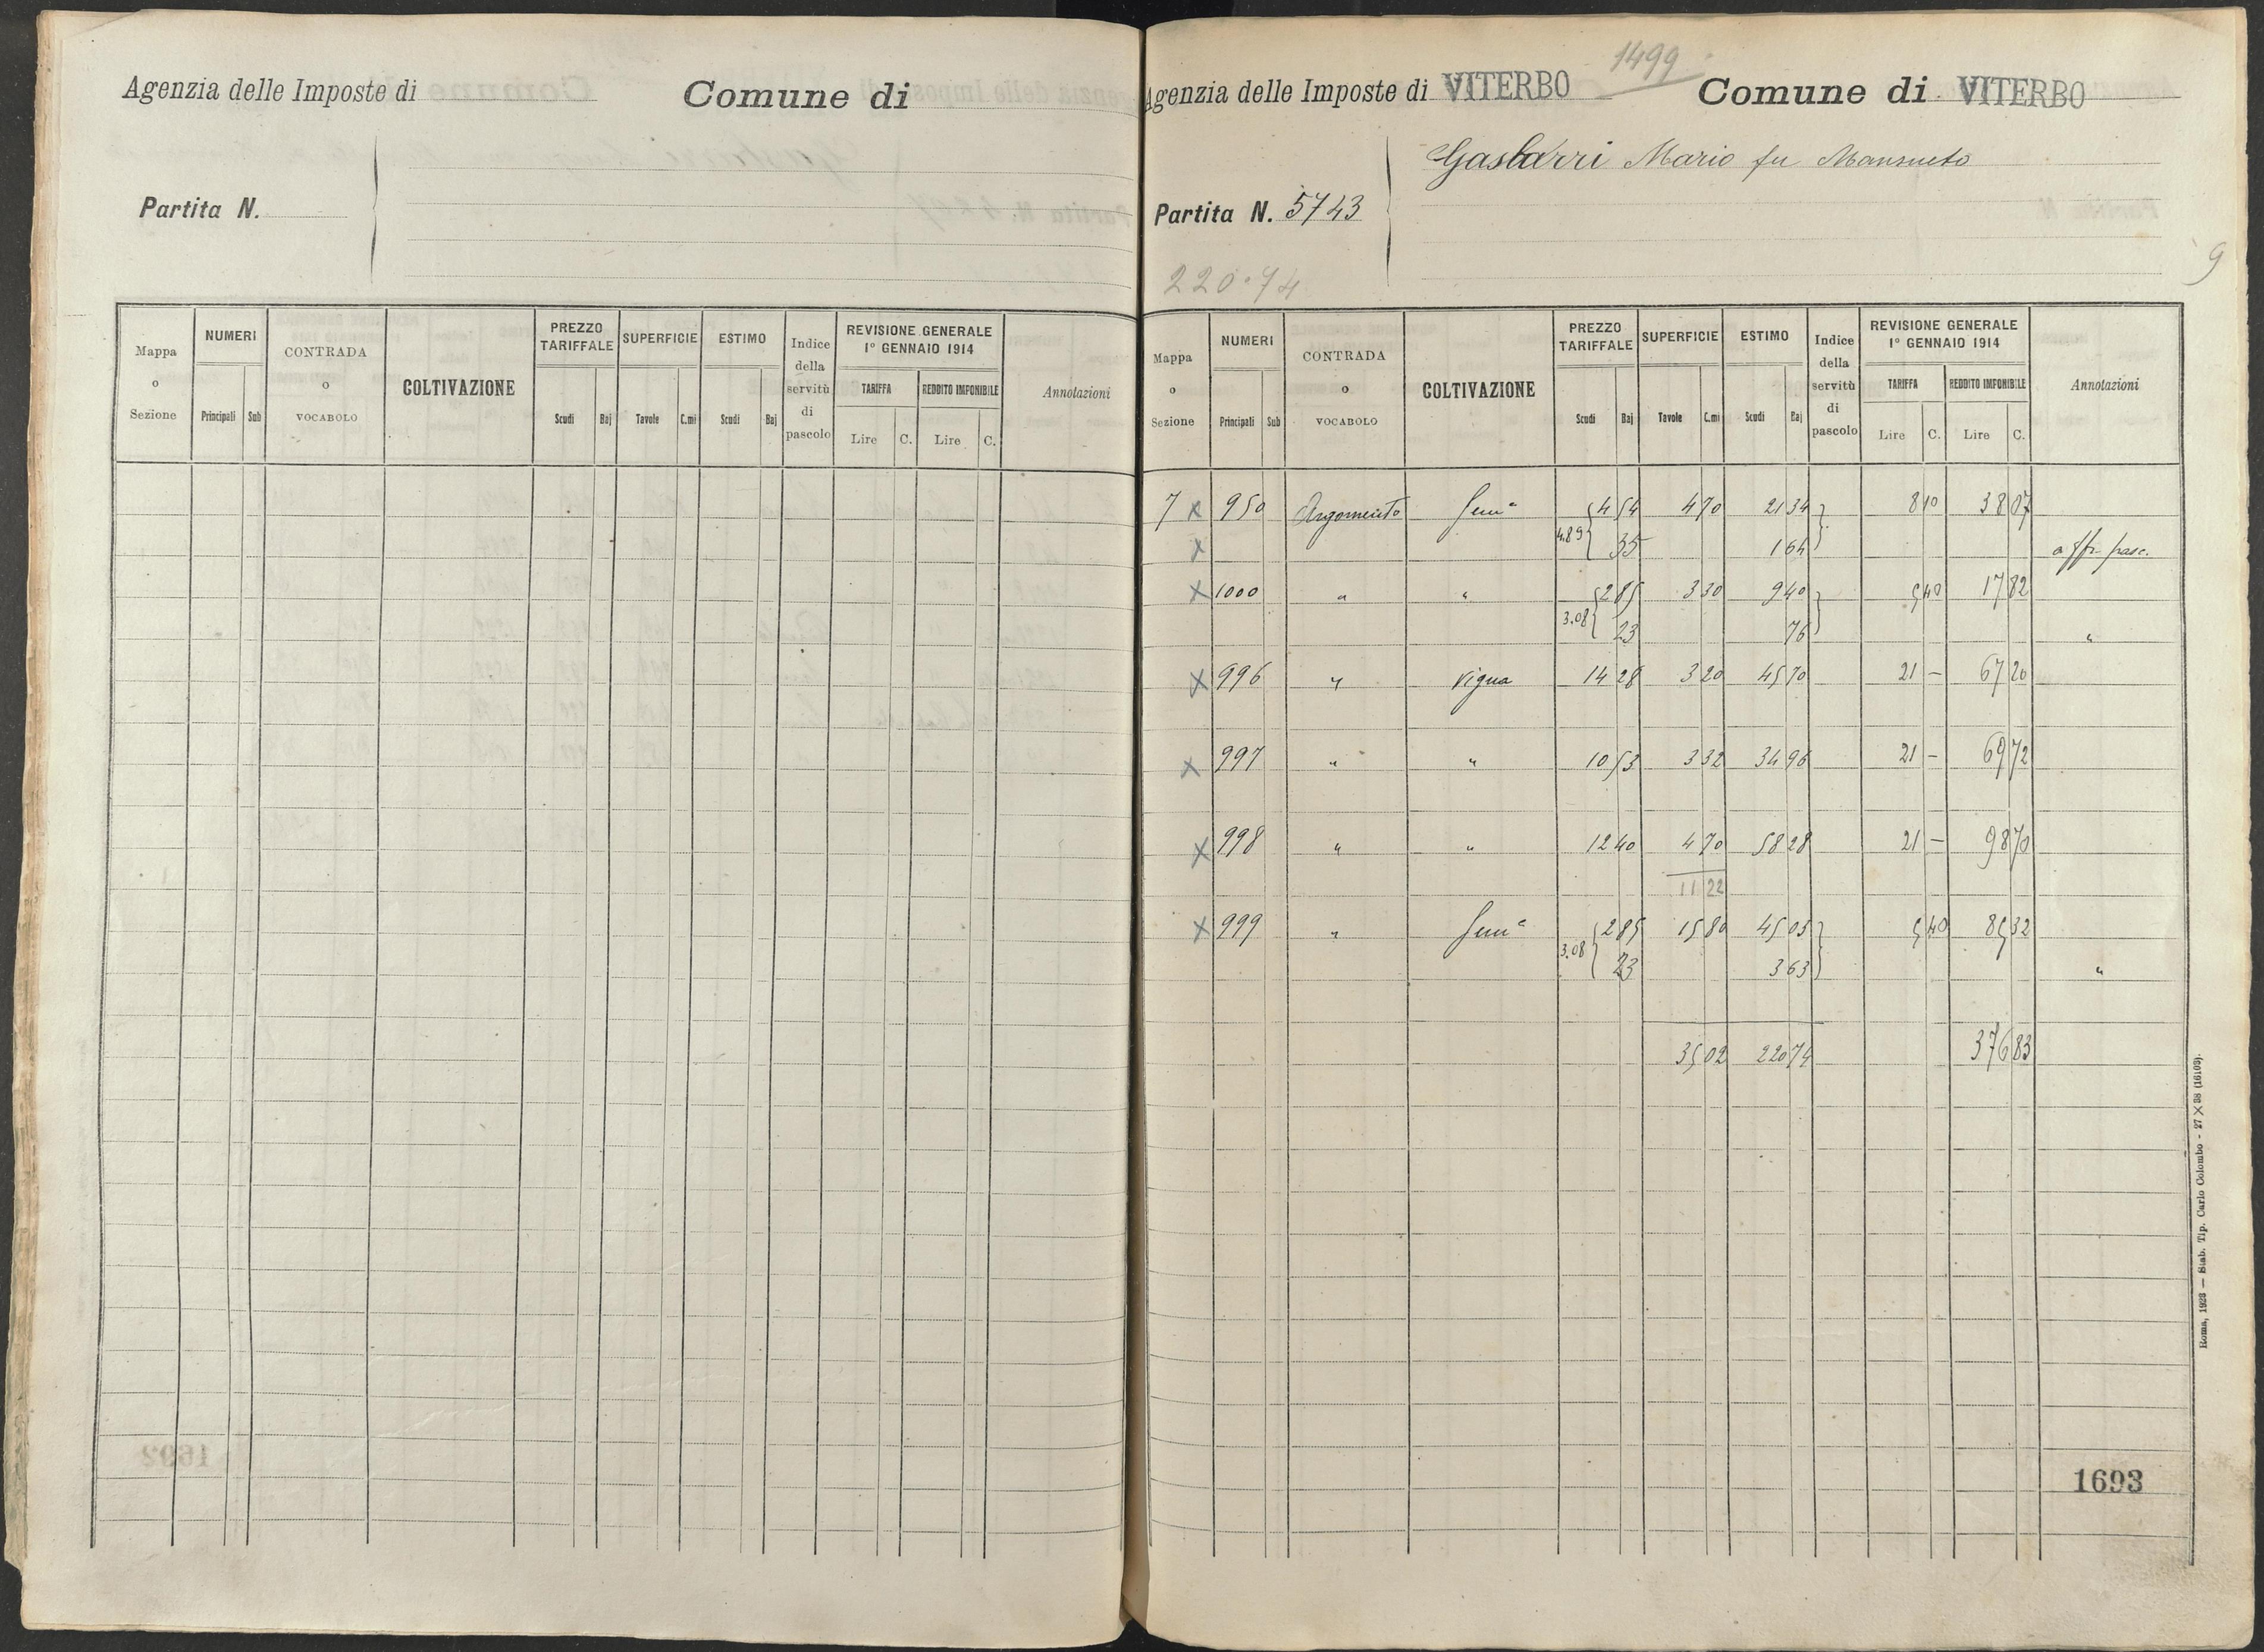 Agenzia delle Imposte di
Comune di
Partita N.
Mappa o Sezione
NUMERI
Principali Sub
CONTRADA o VOCABOLO
COLTIVAZIONE
PREZZO TARIFFALE
Scudi Baj
SUPERFICIE
Tavole C.mi
ESTIMO
Scudi Baj
Indice della servitù di pascolo
REVISIONE GENERALE
1° GENNAIO 1914
TARIFFA
Lire C.
REDDITO IMPONIBILE
Lire C.
Annotazioni
1499
Agenzia delle Imposte di VITERBO
Comune di VITERBO
Gasbarri Mario fu Mansueto
Partita N. 5743
220.74
9
Mappa o Sezione
NUMERI
Principali Sub
CONTRADA o VOCABOLO
COLTIVAZIONE
PREZZO TARIFFALE
Scudi Baj
SUPERFICIE
Tavole C.mi
ESTIMO
Scudi Baj
Indice della servitù di pascolo
REVISIONE GENERALE
1° GENNAIO 1914
TARIFFA
Lire C.
REDDITO IMPONIBILE
Lire C.
Annotazioni
7 x 950 Argomento Sem° 4 54 4 70 21 34 8 10 38 07
x 4.89 35 1 64 affr. pasc.
x 1000 " " 2 85 3 30 9 40 5 40 17 82
3.08 23 76 "
x 996 " Vigna 14 28 3 20 45 70 21 - 67 20
x 997 " " 10 53 3 32 34 96 21 - 69 72
x 998 " " 12 40 4 70 58 28 21 - 98 70
11 22
x 999 " Sem° 2 85 15 80 45 03 5 40 85 32
3.08 23 3 63 "
35 02 220 74 376 83
1693
Roma, 1923 — Stab. Tip. Carlo Colombo - 27 X 38 (16103).